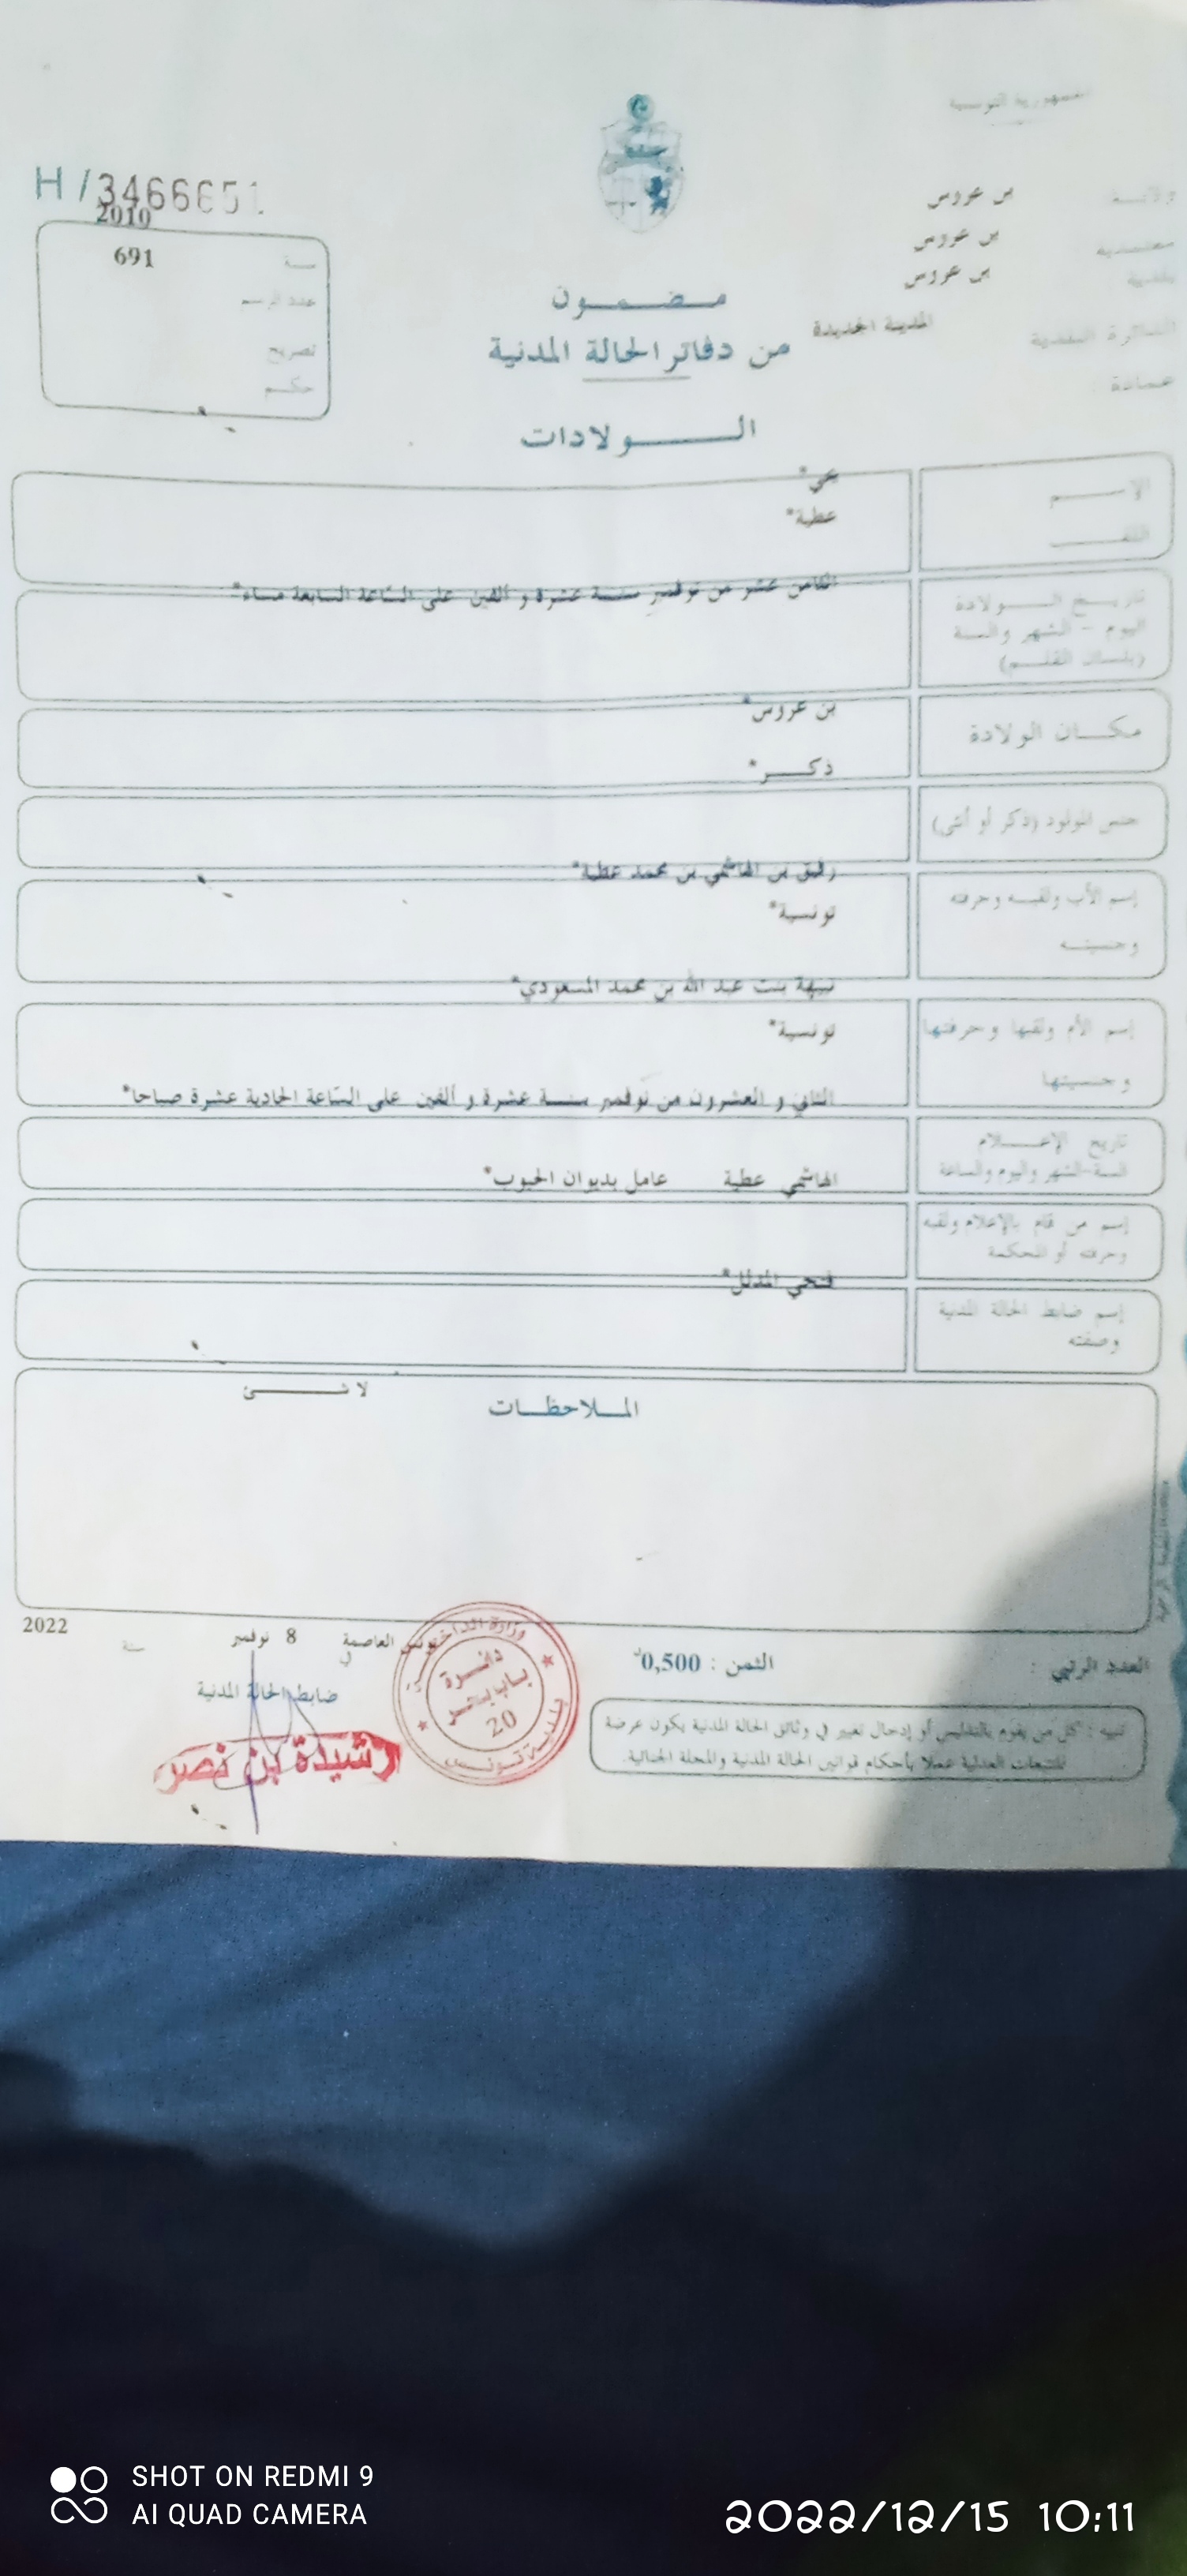 الجمهورية التونسية
H / 3466651
2010
ولايـــة بن عروس
سنـة 691
معتمدية بن عروس
عدد الرسم
بلدية بن عروس
تصريح
الدائرة البلدية المدينة الجديدة
حكـــم
عمادة :
مـضـمـون
من دفاتر الحالة المدنية
الـــولادات
الإســـم
*
اللقـــب عطية*
تاريـخ الـــولادة الثامن عشر من نوفمبر سنـــة عشرة و ألفين على السّاعة السابعة مساء*
اليوم – الشهر والسنة
(بلسان القلـــم)
بن عروس*
مكـــان الولادة
ذكـــر*
جنس المولود (ذكر أو أنثى)
رفيق بن الهاشمي بن محمد عطية*
إسم الأب ولقبـــه وحرفته
تونسية*
وجنسيتـــه
نبيهة بنت عبد الله بن محمد المسعودي*
إسم الأم ولقبها وحرفتها تونسية*
وجنسيتها
الثاني و العشرون من نوفمبر سنـــة عشرة و ألفين على السّاعة الحادية عشرة صباحا*
تاريخ الإعـــلام
السنة-الشهر واليوم والساعة
الهاشمي عطية عامل بديوان الحبوب*
إسم من قام بالإعلام ولقبه
وحرفته أو المحكمة
فتحي المدلل*
إسم ضابط الحالة المدنية
وصفته
لا شـــئ
المـــلاحظـــات
تونس العاصمة في 8 نوفمبر سنة 2022
العدد الرتبي :
الثمن : 0,500د
ضابط الحالة المدنية
رشيدة بن نصر
وزارة الداخلية
دائرة
باب بحر
20
بلدية تونس
تنبيه : كل من يقوم بالتدليس أو إدخال تغيير في وثائق الحالة المدنية يكون عرضة
للتتبعات العدلية عملا بأحكام قوانين الحالة المدنية والمجلة الجنائية.
SHOT ON REDMI 9
AI QUAD CAMERA
2022/12/15 10:11